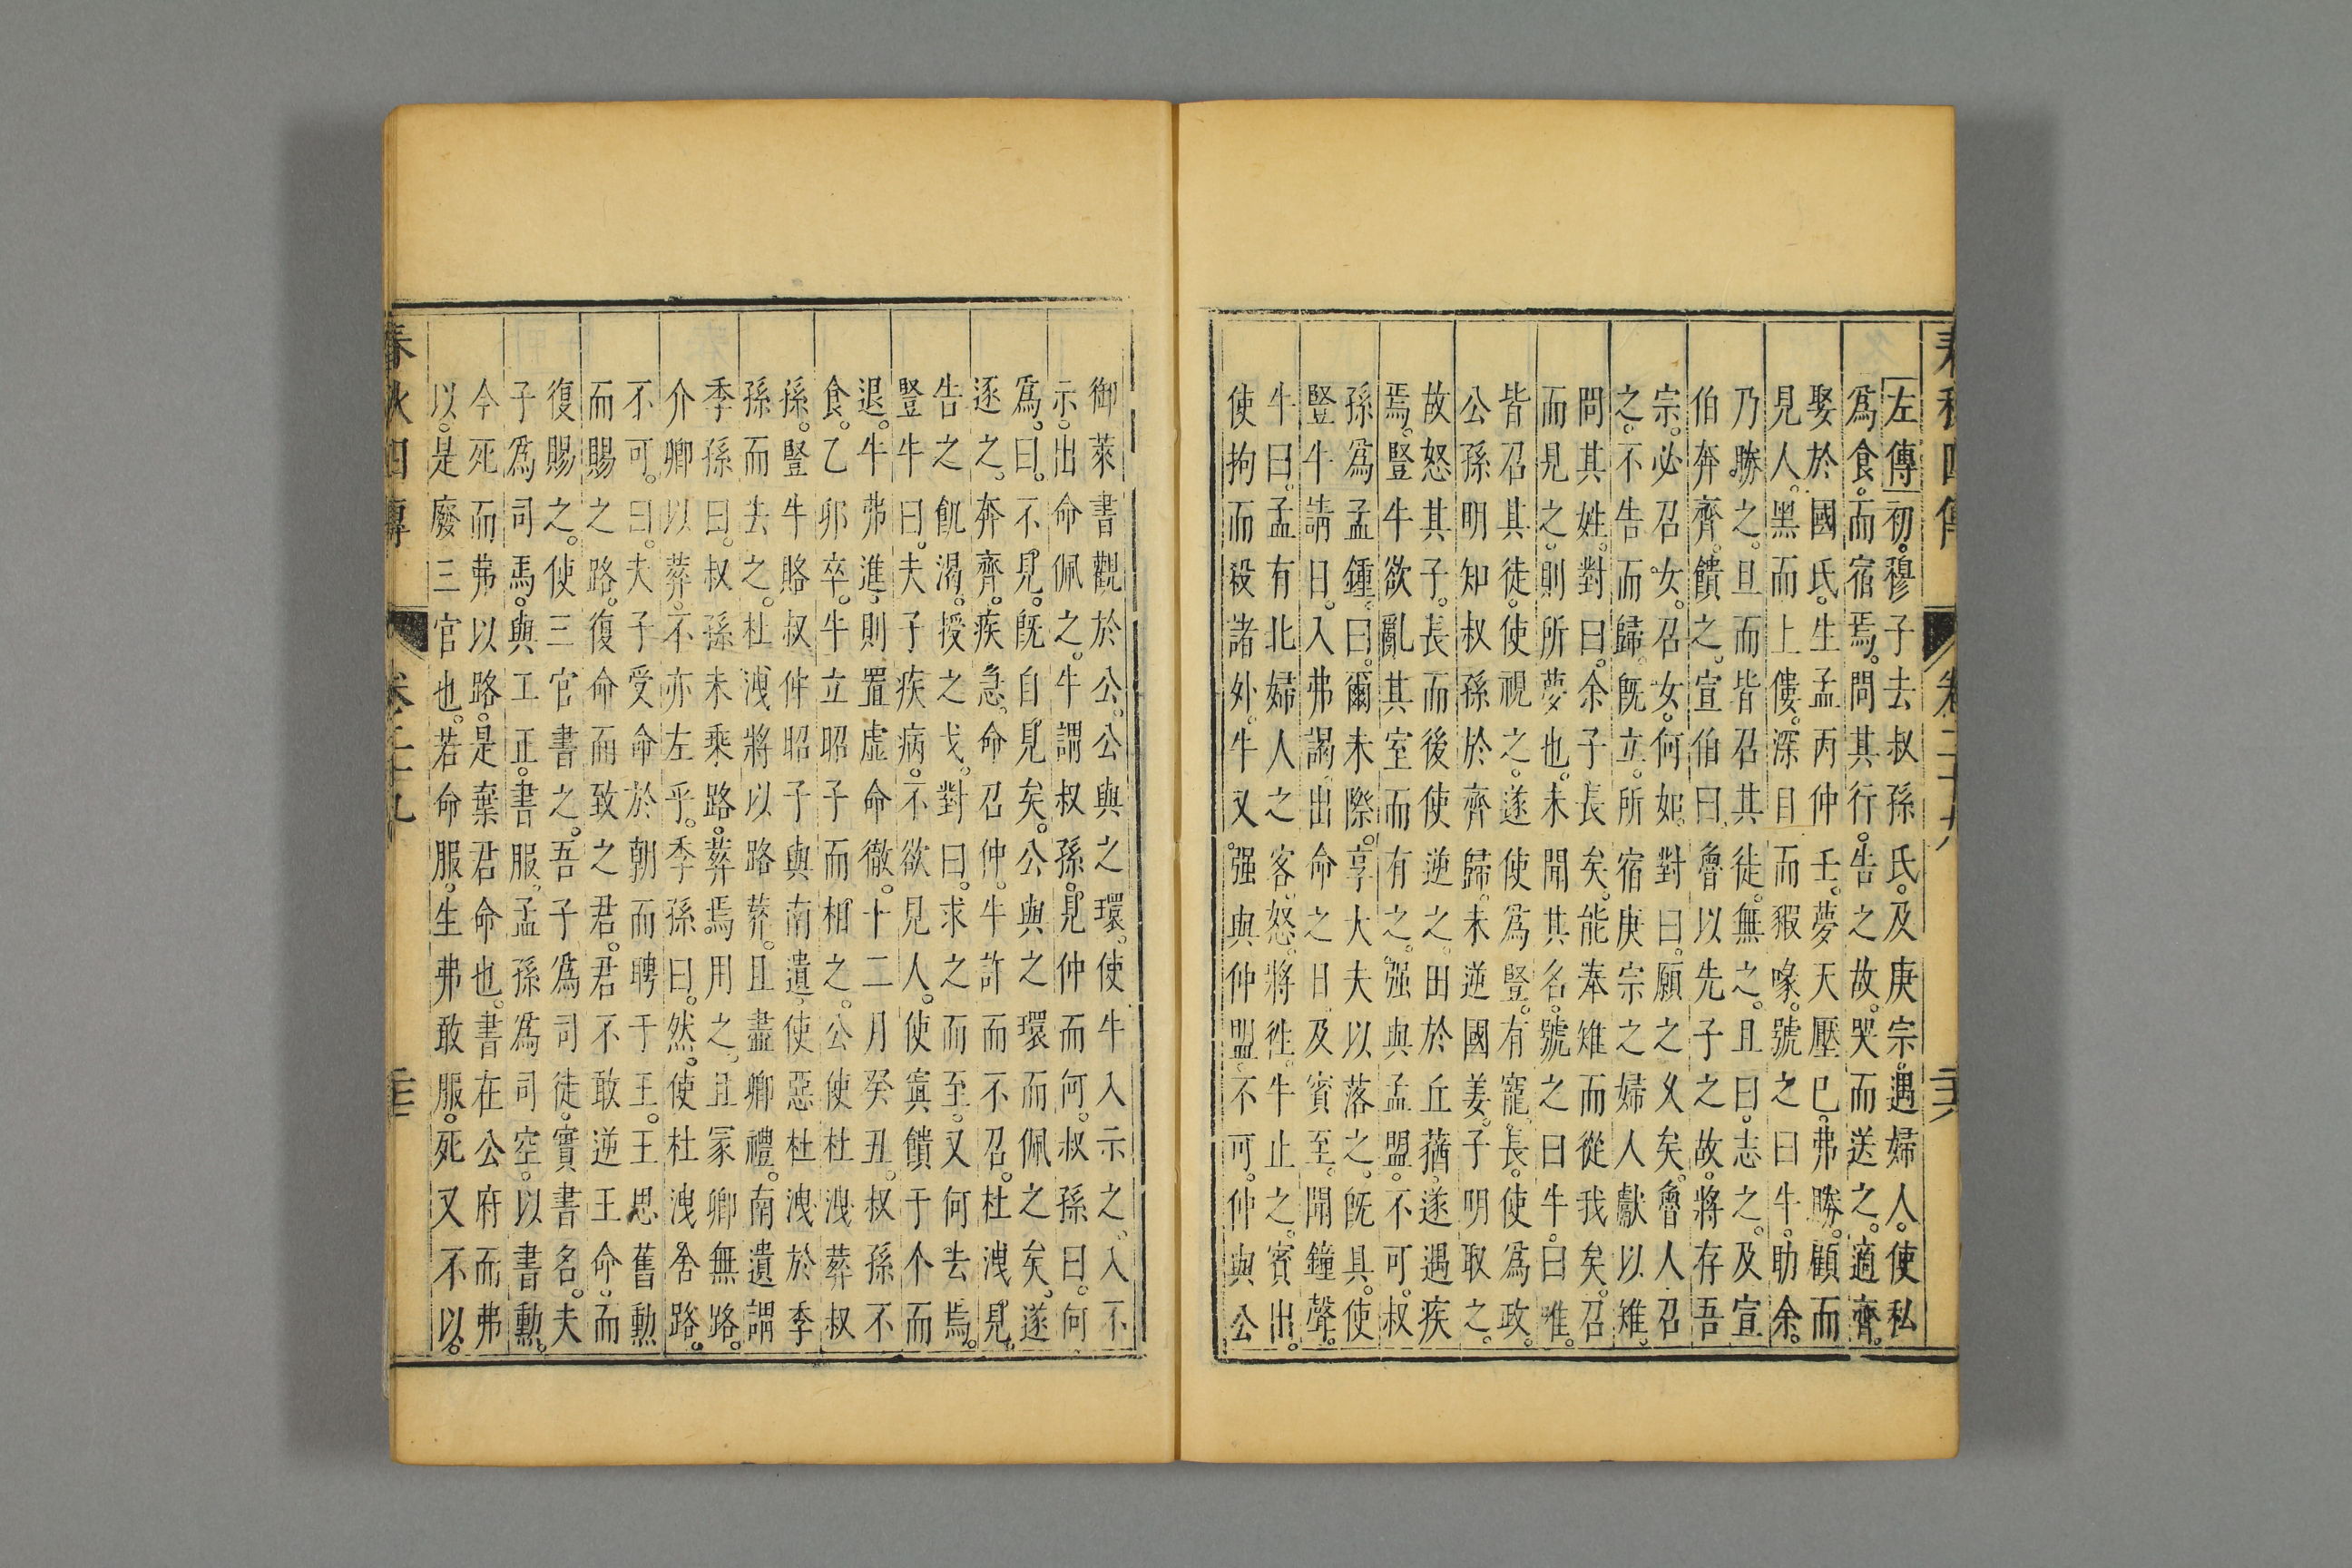 春秋四傳 卷二十九 二十六
左傳初。穆子去叔孫氏。及庚宗。遇婦人。使私
爲食。而宿焉。問其行。告之故。哭而送之。適齊。
娶於國氏。生孟丙仲壬。夢天壓已。弗勝。顧而
見人。黑而上僂。深目而豭喙。號之曰牛。助余。
乃勝之。旦而皆召其徒。無之。且曰。志之。及宣
伯奔齊。饋之。宣伯曰。魯以先子之故。將存吾
宗。必召女。召女。何如。對曰。願之久矣。魯人召
之。不告而歸。旣立。所宿庚宗之婦人獻以雉。
問其姓。對曰。余子長矣。能奉雉而從我矣。召
而見之。則所夢也。未聞其名。號之曰牛。曰唯。
皆召其徒。使視之。遂使爲豎。有寵。長。使爲政。
公孫明知叔孫於齊歸。未逆國姜。子明取之。
故怒其子。長而後使逆之。田於丘蕕。遂遇疾
焉。豎牛欲亂其室而有之。强與孟盟。不可。叔
孫爲孟鍾。曰。爾未際。享大夫以落之。旣具。使
豎牛請日。入弗謁。出命之日。及賓至。聞鐘聲。
牛曰。孟有北婦人之客。怒。將往。牛止之。賓出。
使拘而殺諸外。牛又。强與仲盟。不可。仲與公
御萊書觀於公。公與之環。使牛入示之。入不
示。出命佩之。牛謂叔孫。見仲而何。叔孫曰。何
爲。曰。不見。旣自見矣。公與之環而佩之矣。遂
逐之。奔齊。疾急。命召仲。牛許而不召。杜洩見。
告之飢渴。授之戈。對曰。求之而至。又何去焉。
豎牛曰。夫子疾病。不欲見人。使寘饋于个而
退。牛弗進。則置虛命徹。十二月癸丑。叔孫不
食。乙卯卒。牛立昭子而相之。公使杜洩葬叔
孫。豎牛賂叔仲昭子與南遺。使惡杜洩於季
孫而去之。杜洩將以路葬。且盡卿禮。南遺謂
季孫曰。叔孫未乘路。葬焉用之。且冢卿無路。
介卿以葬。不亦左乎。季孫曰。然。使杜洩舍路。
不可。曰。夫子受命於朝而聘于王。王思舊勲
而賜之路。復命而致之君。君不敢逆王命。而
復賜之。使三官書之。吾子爲司徒。實書名。夫
子爲司馬。與工正。書服。孟孫爲司空。以書勲。
今死而弗以路。是棄君命也。書在公府而弗
以。是廢三官也。若命服。生弗敢服。死又不以。
春秋四傳 卷二十九